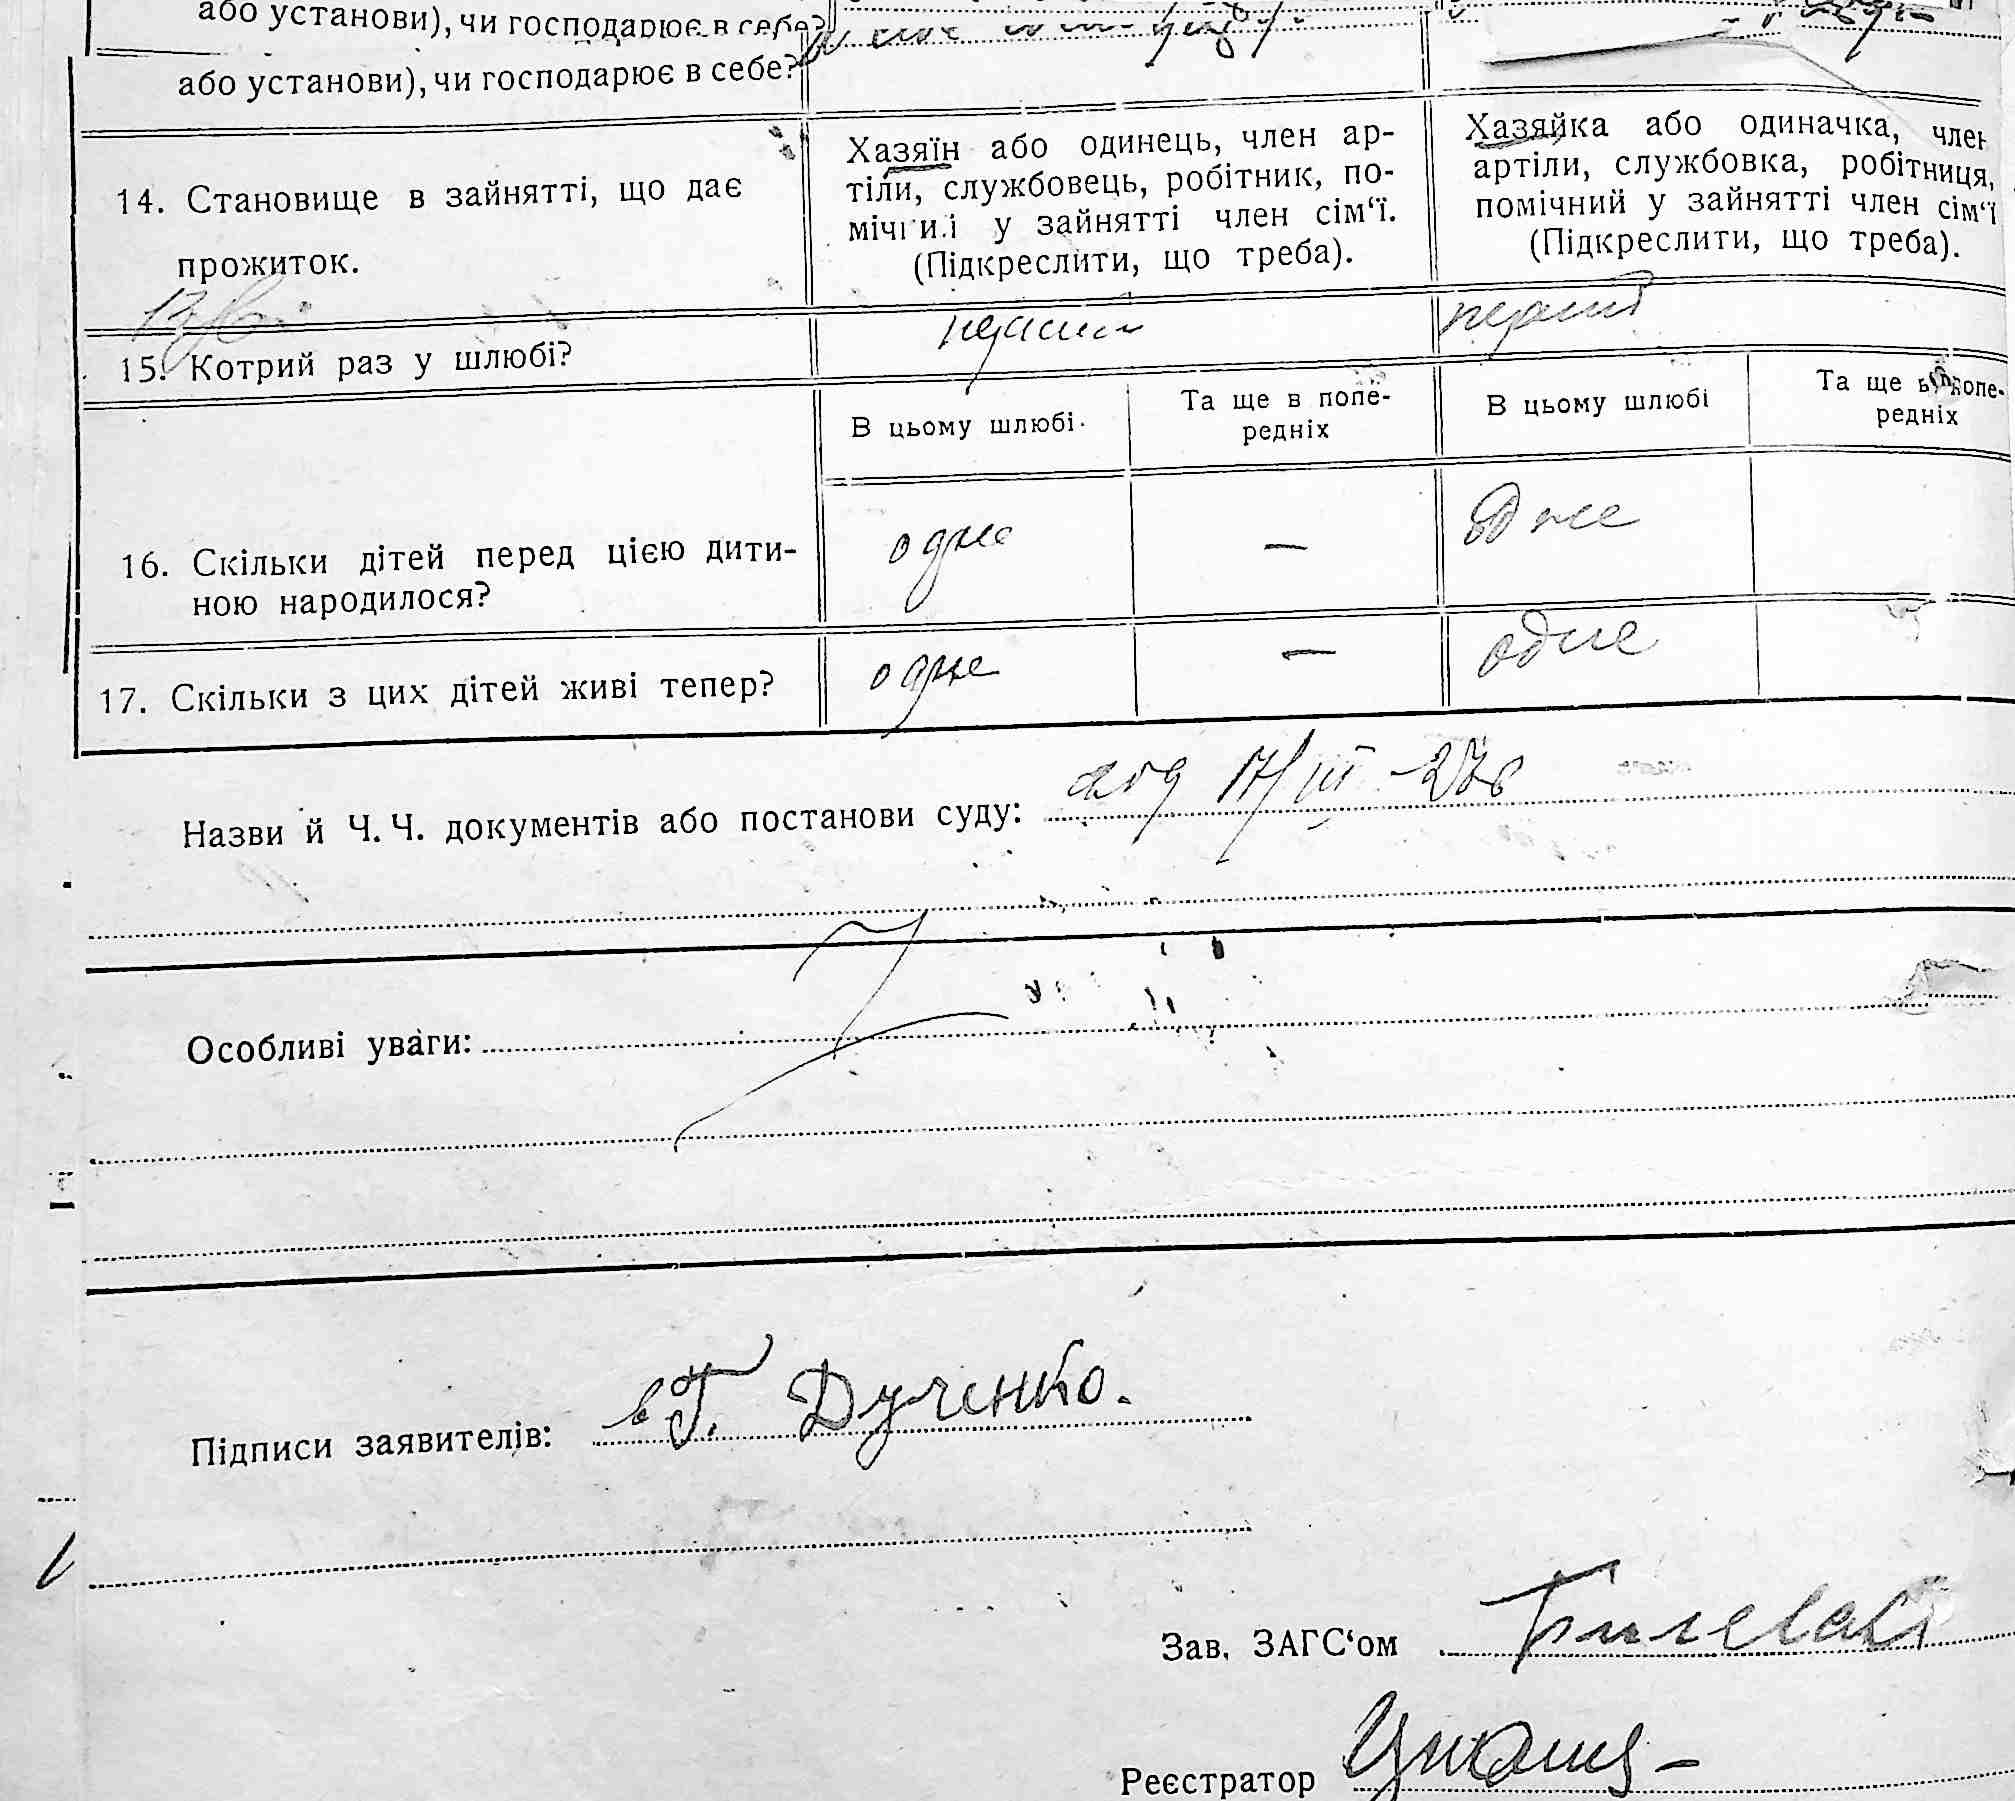 або установи), чи господарює в себе?
або установи), чи господарює в себе?
14. Становище в зайнятті, що дає
прожиток.
Хазяїн або одинець, член ар-
тіли, службовець, робітник, по-
мічний у зайнятті член сім‘ї.
(Підкреслити, що треба).
Хазяйка або одиначка, член
артіли, службовка, робітниця,
помічний у зайнятті член сім‘ї
(Підкреслити, що треба).
15. Котрий раз у шлюбі?
перший
перший
В цьому шлюбі
Та ще в попе-
редніх
В цьому шлюбі
Та ще в попе-
редніх
16. Скільки дітей перед цією дити-
ною народилося?
одне
—
одне
17. Скільки з цих дітей живі тепер?
одне
—
одне
Назви й Ч. Ч. документів або постанови суду: 17/III-27
Особливі уваги:
Підписи заявителів: Г. Дученко.
Зав. ЗАГС‘ом
Реєстратор